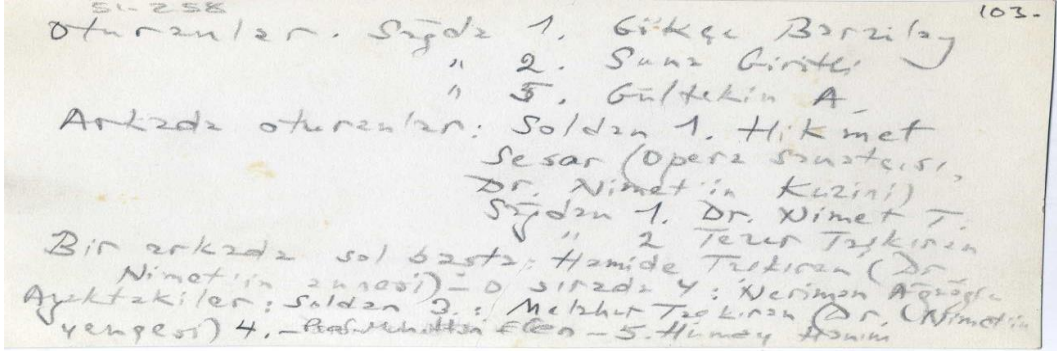 51-258
103-
Oturanlar. Sağda 1. Gökçe Barzilay
" 2. Suna Giritli
" 5. Gültekin A.
Arkada oturanlar: Soldan 1. Hikmet
Sesar (Opera sanatçısı,
Dr. Nimet'in Kuzini)
Sağdan 1. Dr. Nimet T.
" 2 Tezer Taşkıran
Bir arkada sol başta: Hamide Taşkıran (Dr.
Nimet'in annesi) - O sırada 4: Neriman Ağaoğlu
Ayaktakiler: Soldan 3.: Melahur Taşkıran (Dr. Nimet'in
yengesi) 4. - Prof. Muhittin - 5. Hümay Hanım